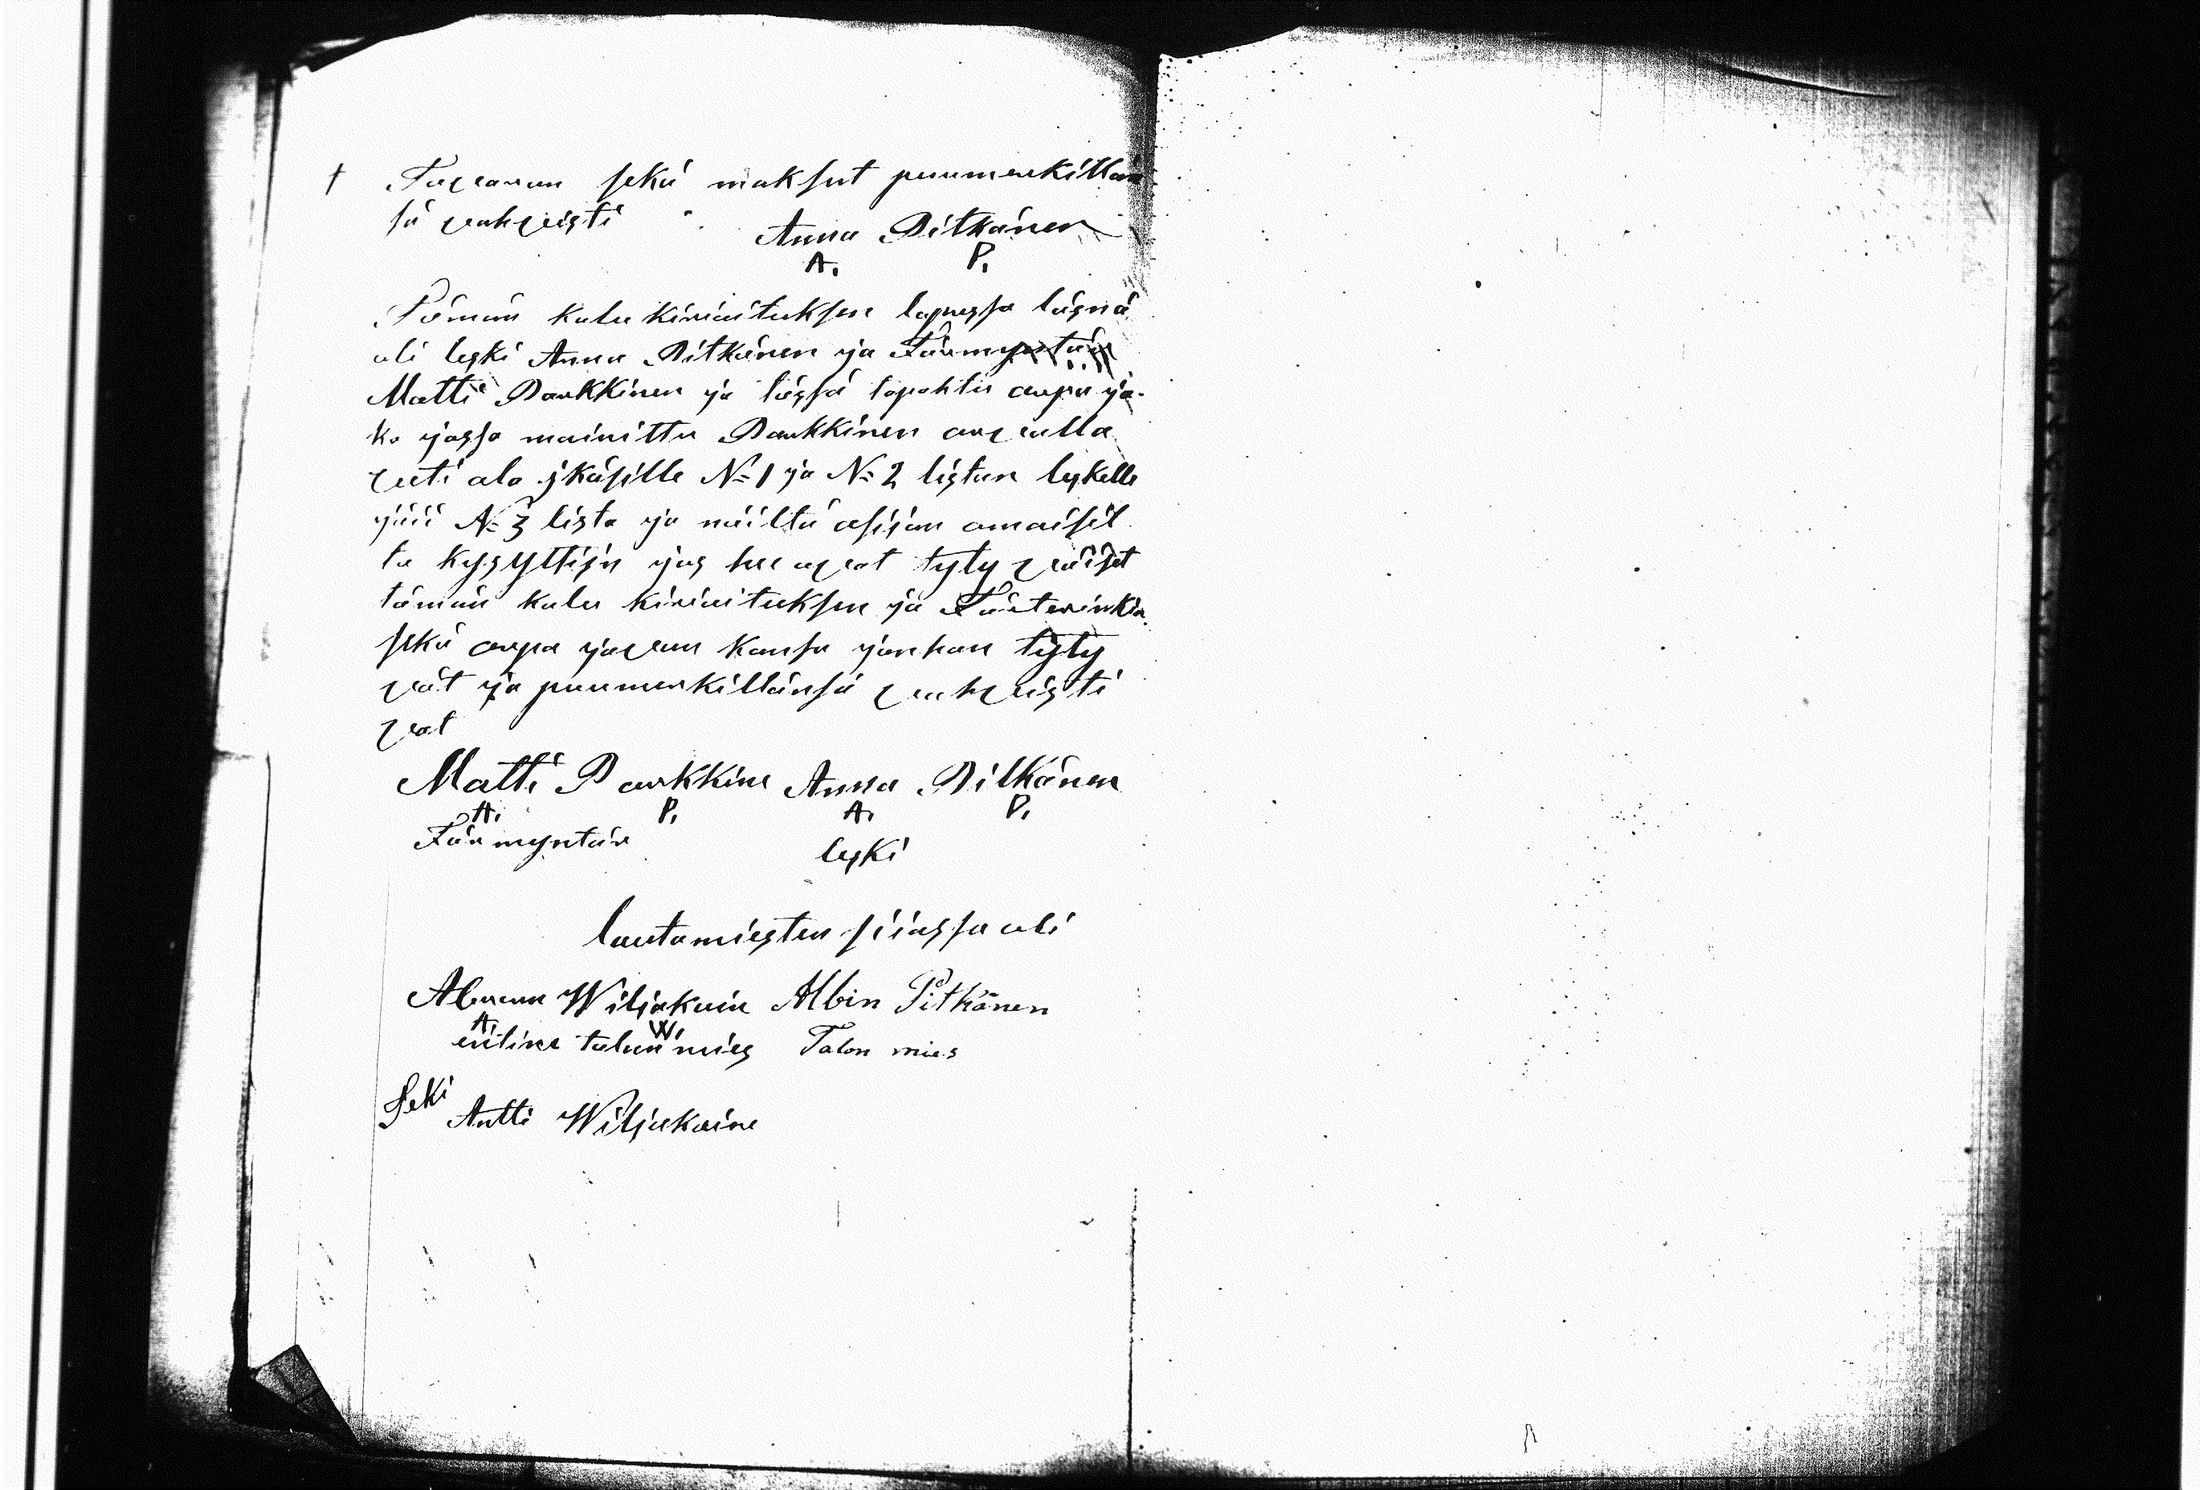 Tavaran sekä maksut puumerkillän
sä vahvisti
Anna Pitkänen
A. P.
Tämän kalu kirioituksen lopussa läsnä
oli leski Anna Pitkänen ja Färmyntäri
Matti Parkkinen ja tässä tapahtu arpa ja-
ko jossa mainittu Parkkinen arvalla
veti ala jkäsille No 1 ja No 2 listan leskelle
jäi No 3 lista ja näiltä asijan omaisil
ta kysyttijn jos he ovat tyty väiset
tämän kalu kirioituksen ja
sekä arpa javan kansa jonhan tyty
vät ja puumerkillänsä vahvisti
vat
Matti Parkkine Anna Pitkänen
A. P. A. P.
Färmyntäri leski
lautamiesten siiassa oli
Abram Wiljakain Albin Pitkänen
A. W.
entine talan mies Talon mies
Seki Antti Wiljakaine